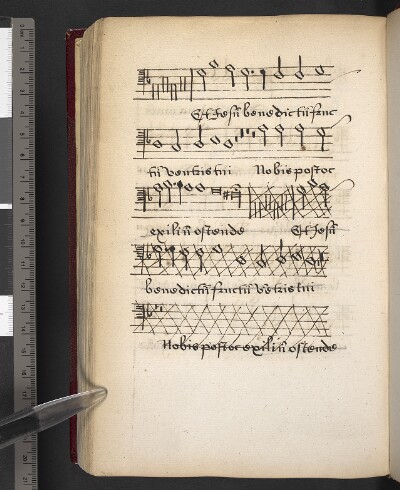 Et Jesū benedictū fruc
tū ventris tui Nobis post oc
exiliū ostende Et Jesū
benedictū fructū ventris tui
Nobis post oc exiliū ostende